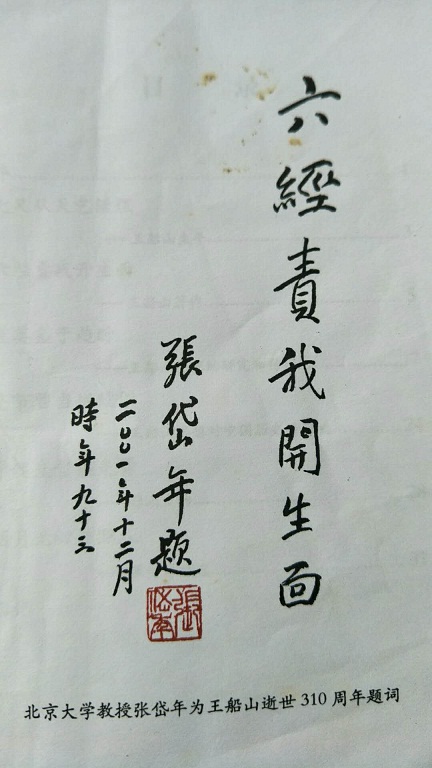 六經責我開生面
張岱年題
二〇〇一年十二月
時年九十三
張岱年
北京大学教授张岱年为王船山逝世310周年题词